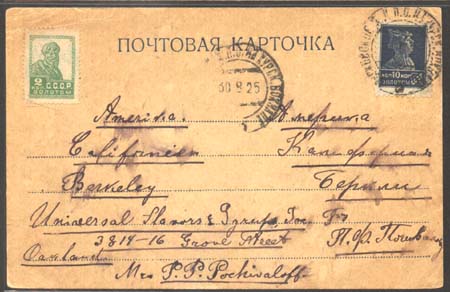 ПОЧТОВАЯ КАРТОЧКА
2 КОП. СССР
ЗОЛОТОМ
КОП 10 КОП
ЗОЛОТОМ
30 8 25
Amerika. Америка
California Калифорния
Berkeley Беркли
Universal Flavors & Syrups Inc
3814-16 Grove Street
Oakland
Mr. P. P. Pochivaloff
П. Ф.